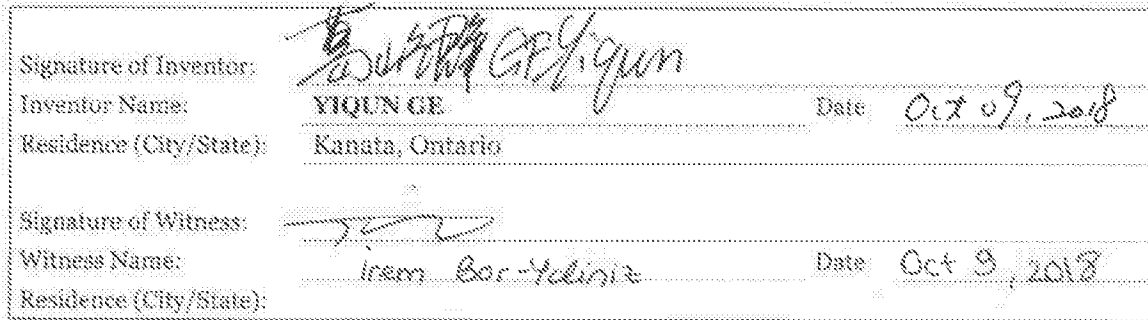 Signature of Inventor: GE Yiqun
Inventor Name: YIQUN GE Date Oct 09, 2018
Residence (City/State): Kanata, Ontario
Signature of Witness:
Witness Name: irem Bor-Yaliniz Date Oct 9, 2018
Residence (City/State):